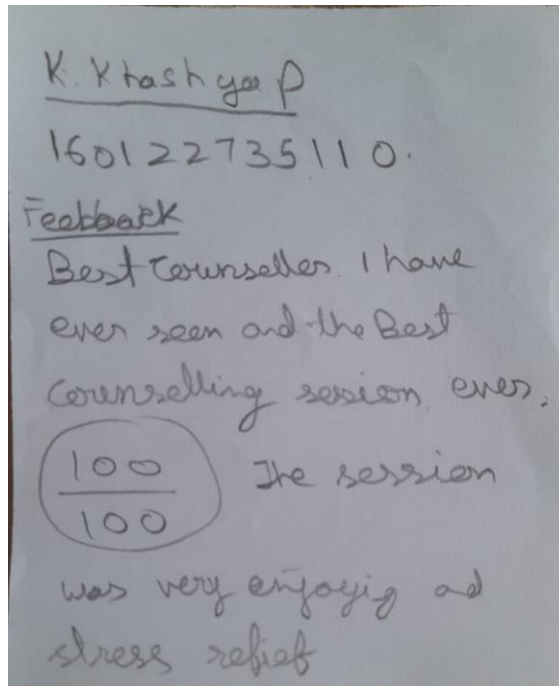 K. Khashyap
160122735110.
Feedback
Best Counseller. I have
ever seen and the Best
Counselling session ever.
100
100
The session
was very enjoyig ad
stress relief